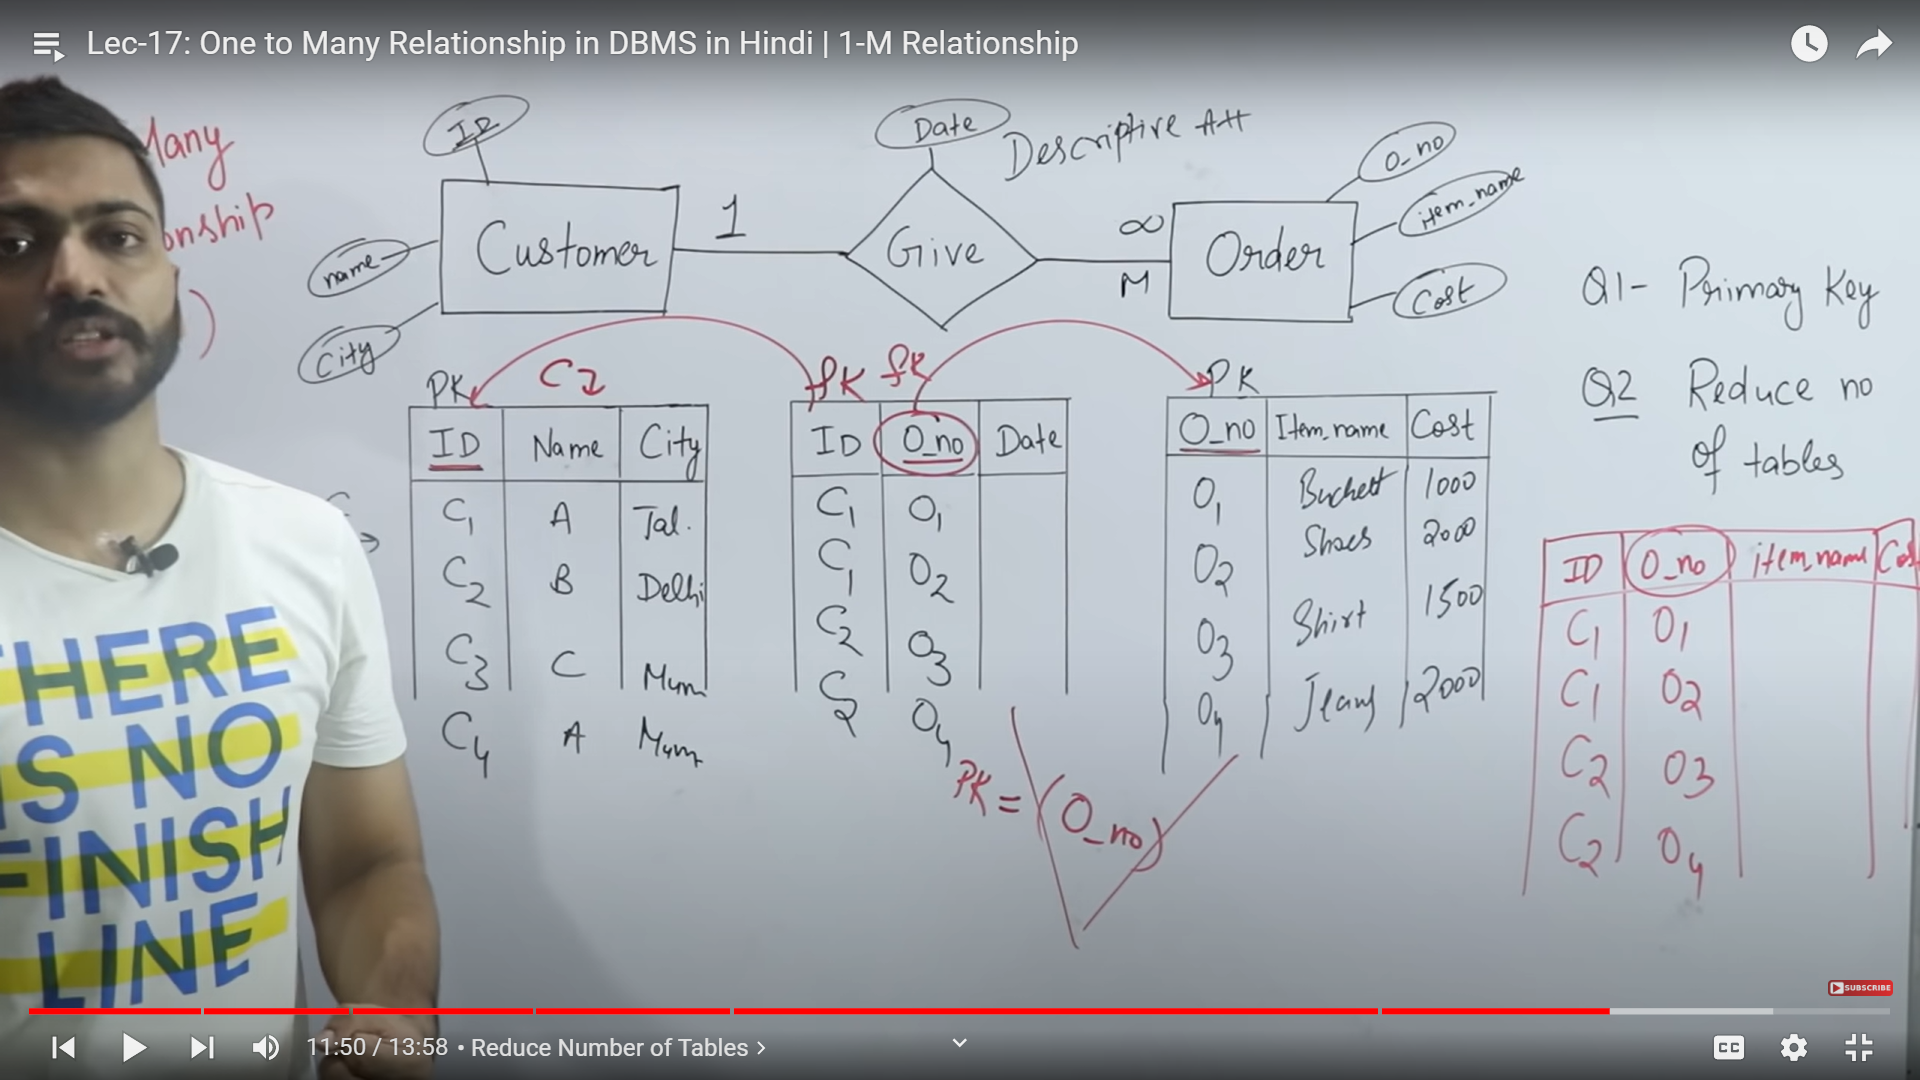 Lec-17: One to Many Relationship in DBMS in Hindi | 1-M Relationship
Many
onship
)
ID
name
City
Customer
1
Date
Descriptive Att
Give
∞
M
Order
O_no
item_name
Cost
Q1- Primary Key
Q2 Reduce no
of tables
PK
ID Name City
C1 A Jal.
C2 B Delhi
C3 C Mum
C4 A Mum
fK fk
ID O_no Date
C1 O1
C1 O2
C2 O3
C2 O4
PK = (O_no)
PK
O_no Item_name Cost
O1 1000
O2 Shoes 2000
O3 Shirt 1500
O4 Jeans 2000
ID O_no item_name Cos
C1 O1
C1 O2
C2 O3
C2 O4
HERE
IS NO
FINISH
LINE
SUBSCRIBE
11:50 / 13:58 • Reduce Number of Tables >
CC